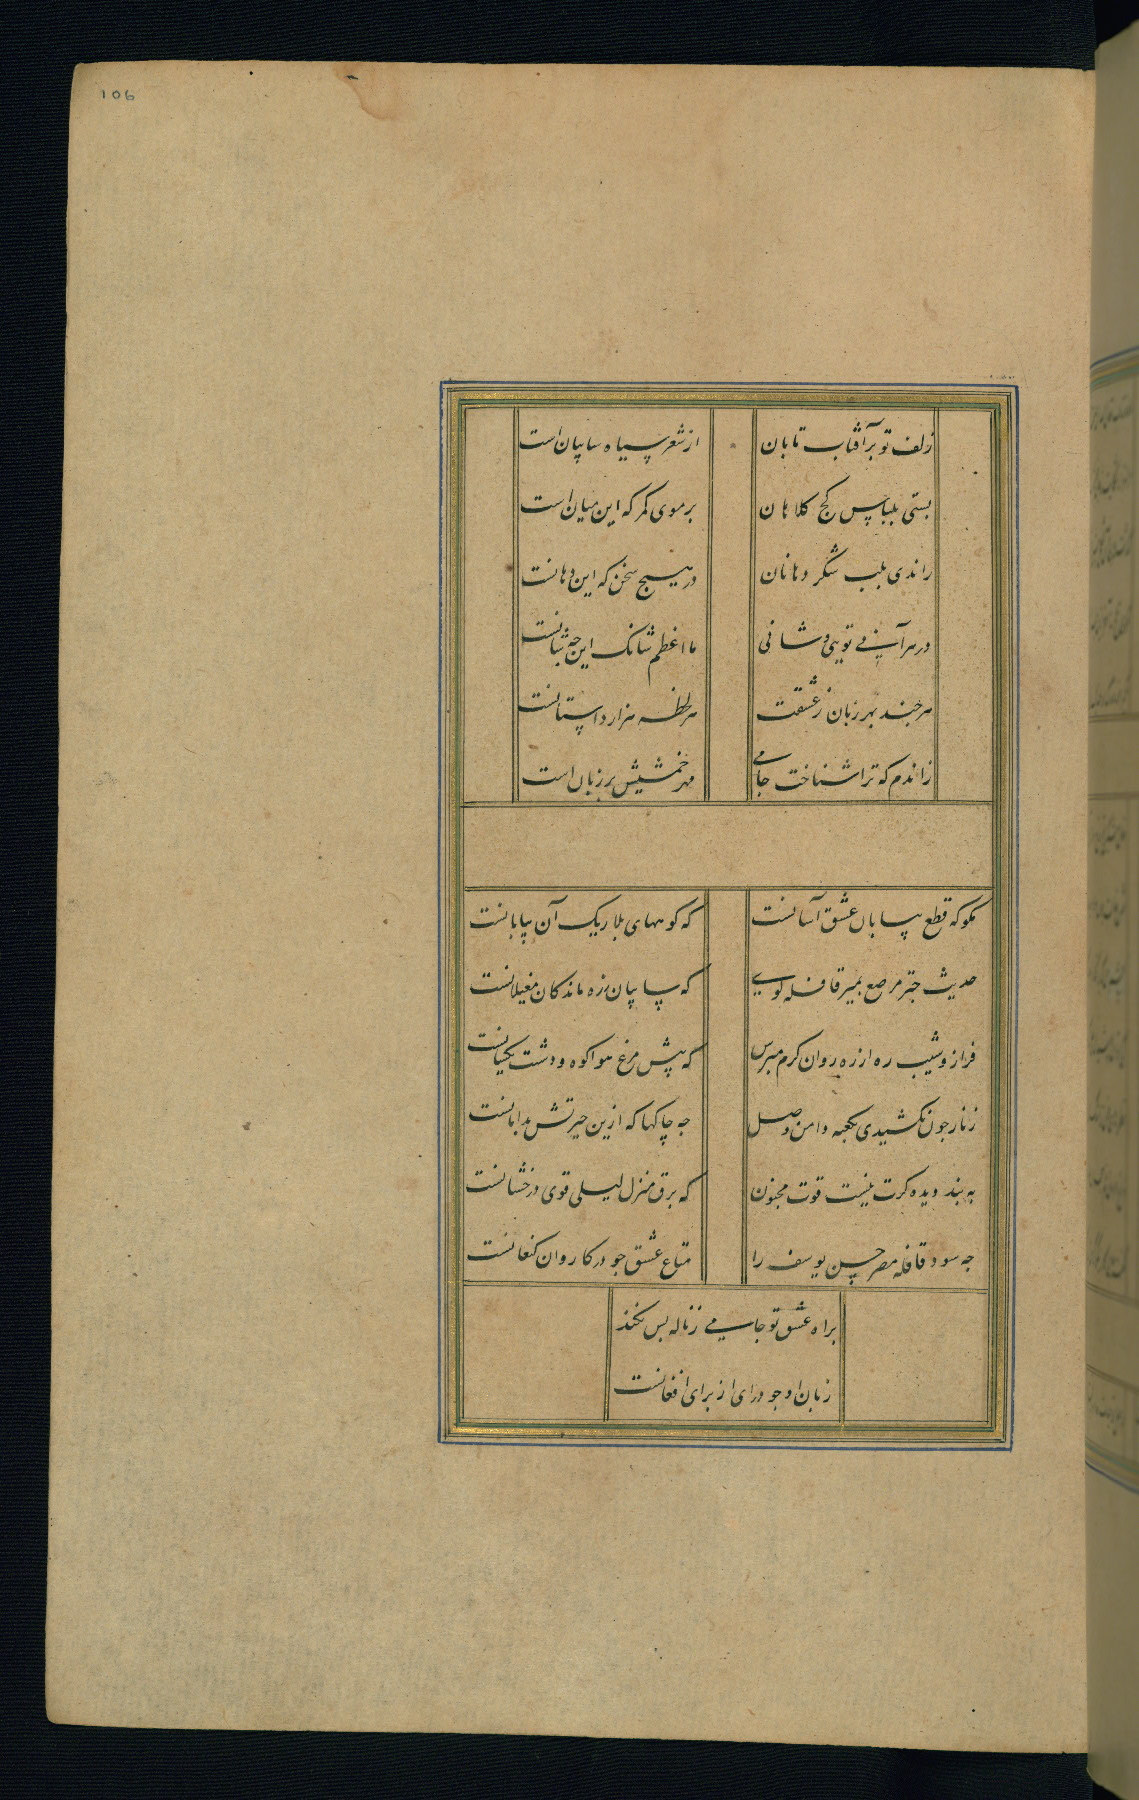 106
زلف تو بر آفتاب تابان
از شعر سیاه سایبان است
بستی بلباس کج کلاهان
بر موی کمر که این میان است
راندی بلب شکر دهانان
در هیچ سخن که این دهانست
در هر آنی تویی و شانی
ما اعظم شانک این چه شانست
هر چند بهر زبان ز عشقت
هر لحظه هزار داستانست
زاندم که ترا شناخت جامی
مهر خمشیش بر زبان است
مکو که قطع بیابان عشق آسانست
که کوههای بلا ریک آن بیابانست
حدیث چتر مرصع بمیر قافله کوی
که سایبان بره ماندکان مغیلانست
فراز و شیب ره از ره روان کرم مپرس
که پیش مرغ هوا کوه و دشت یکسانست
ز ناز چون نکشیدی بکعبه دامن وصل
چه چاکها که ازین حیرتش بدامانست
به بند دیده کرت نیست قوت مجنون
که برق منزل لیلی قوی درخشانست
چه سود قافله مصر حسن یوسف را
متاع عشق چو در کاروان کنعانست
براه عشق تو جامی ز ناله بس نکند
زبان او چو درای از برای افغانست